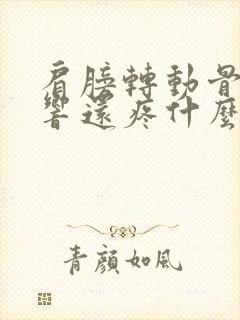 肩膀轉動骨
響還疼什麼
青顏如風